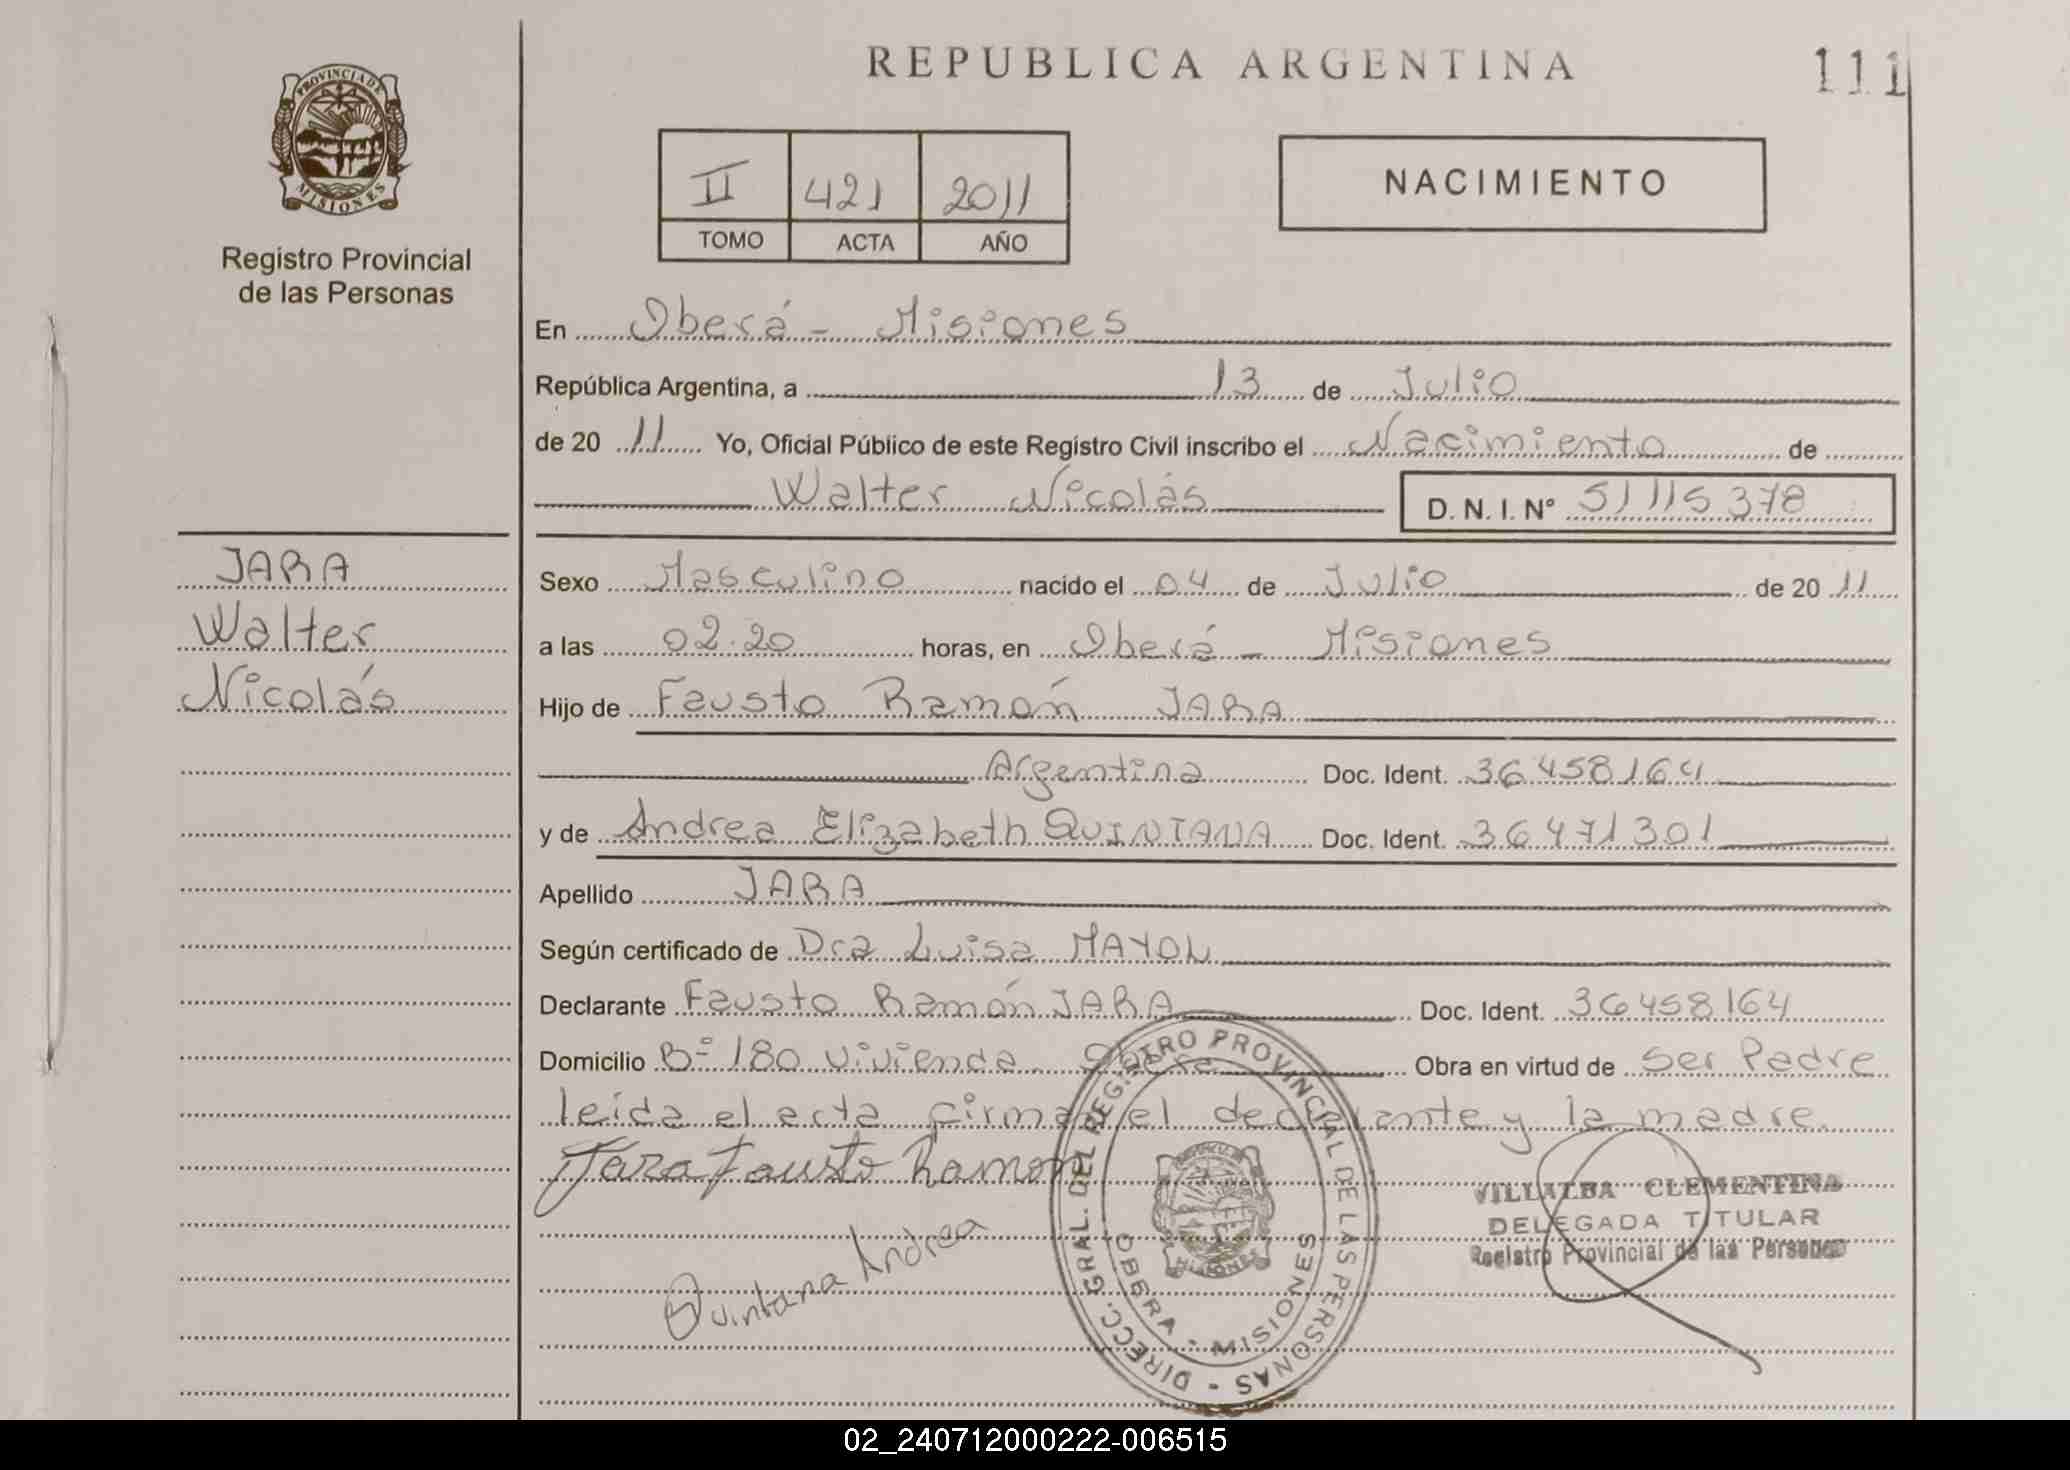 PROVINCIA DE
MISIONES
Registro Provincial
de las Personas
JARA
Walter
Nicolás
REPUBLICA ARGENTINA
111
II 421 2011
TOMO ACTA AÑO
NACIMIENTO
En Oberá - Misiones
República Argentina, a 13 de Julio
de 20 11 Yo, Oficial Público de este Registro Civil inscribo el Nacimiento de
Walter Nicolás D. N. I. N° 51115378
Sexo Masculino nacido el 04 de Julio de 20 11
a las 02.20 horas, en Oberá - Misiones
Hijo de Fausto Ramón JARA
Argentina Doc. Ident. 36458164
y de Andrea Elizabeth QUINTANA Doc. Ident. 36471301
Apellido JARA
Según certificado de Dra Luisa MAYOL
Declarante Fausto Ramón JARA Doc. Ident. 36458164
Domicilio B° 180 vivienda. Oberá Obra en virtud de Ser Padre
leída el acta firman el declarante y la madre.
Jara Fausto Ramon
Quintana Andrea
DIRECC. GRAL. DEL REGISTRO PROVINCIAL DE LAS PERSONAS -
OBERA - MISIONES
MISIONES
VILLALBA CLEMENTINA
DELEGADA TITULAR
Registro Provincial de las Personas
02_240712000222-006515